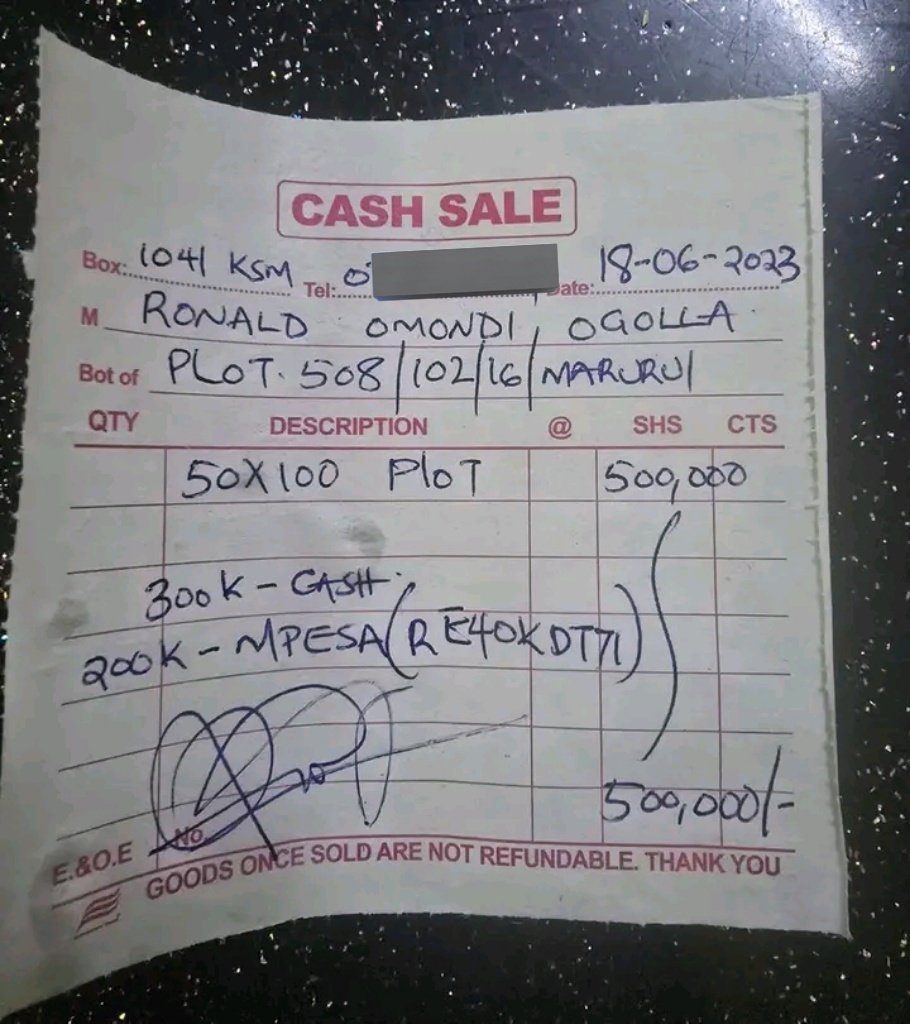 CASH SALE
Box: 1041 KSM Tel: 0 Date: 18-06-2023
M RONALD OMONDI, OGOLLA
Bot of PLOT. 508/102/16/MARURUI
QTY DESCRIPTION @ SHS CTS
50X100 PLOT 500,000
300K - CASH.
200K - MPESA (RE40KDT71)
500,000/-
E.&O.E No.
GOODS ONCE SOLD ARE NOT REFUNDABLE. THANK YOU